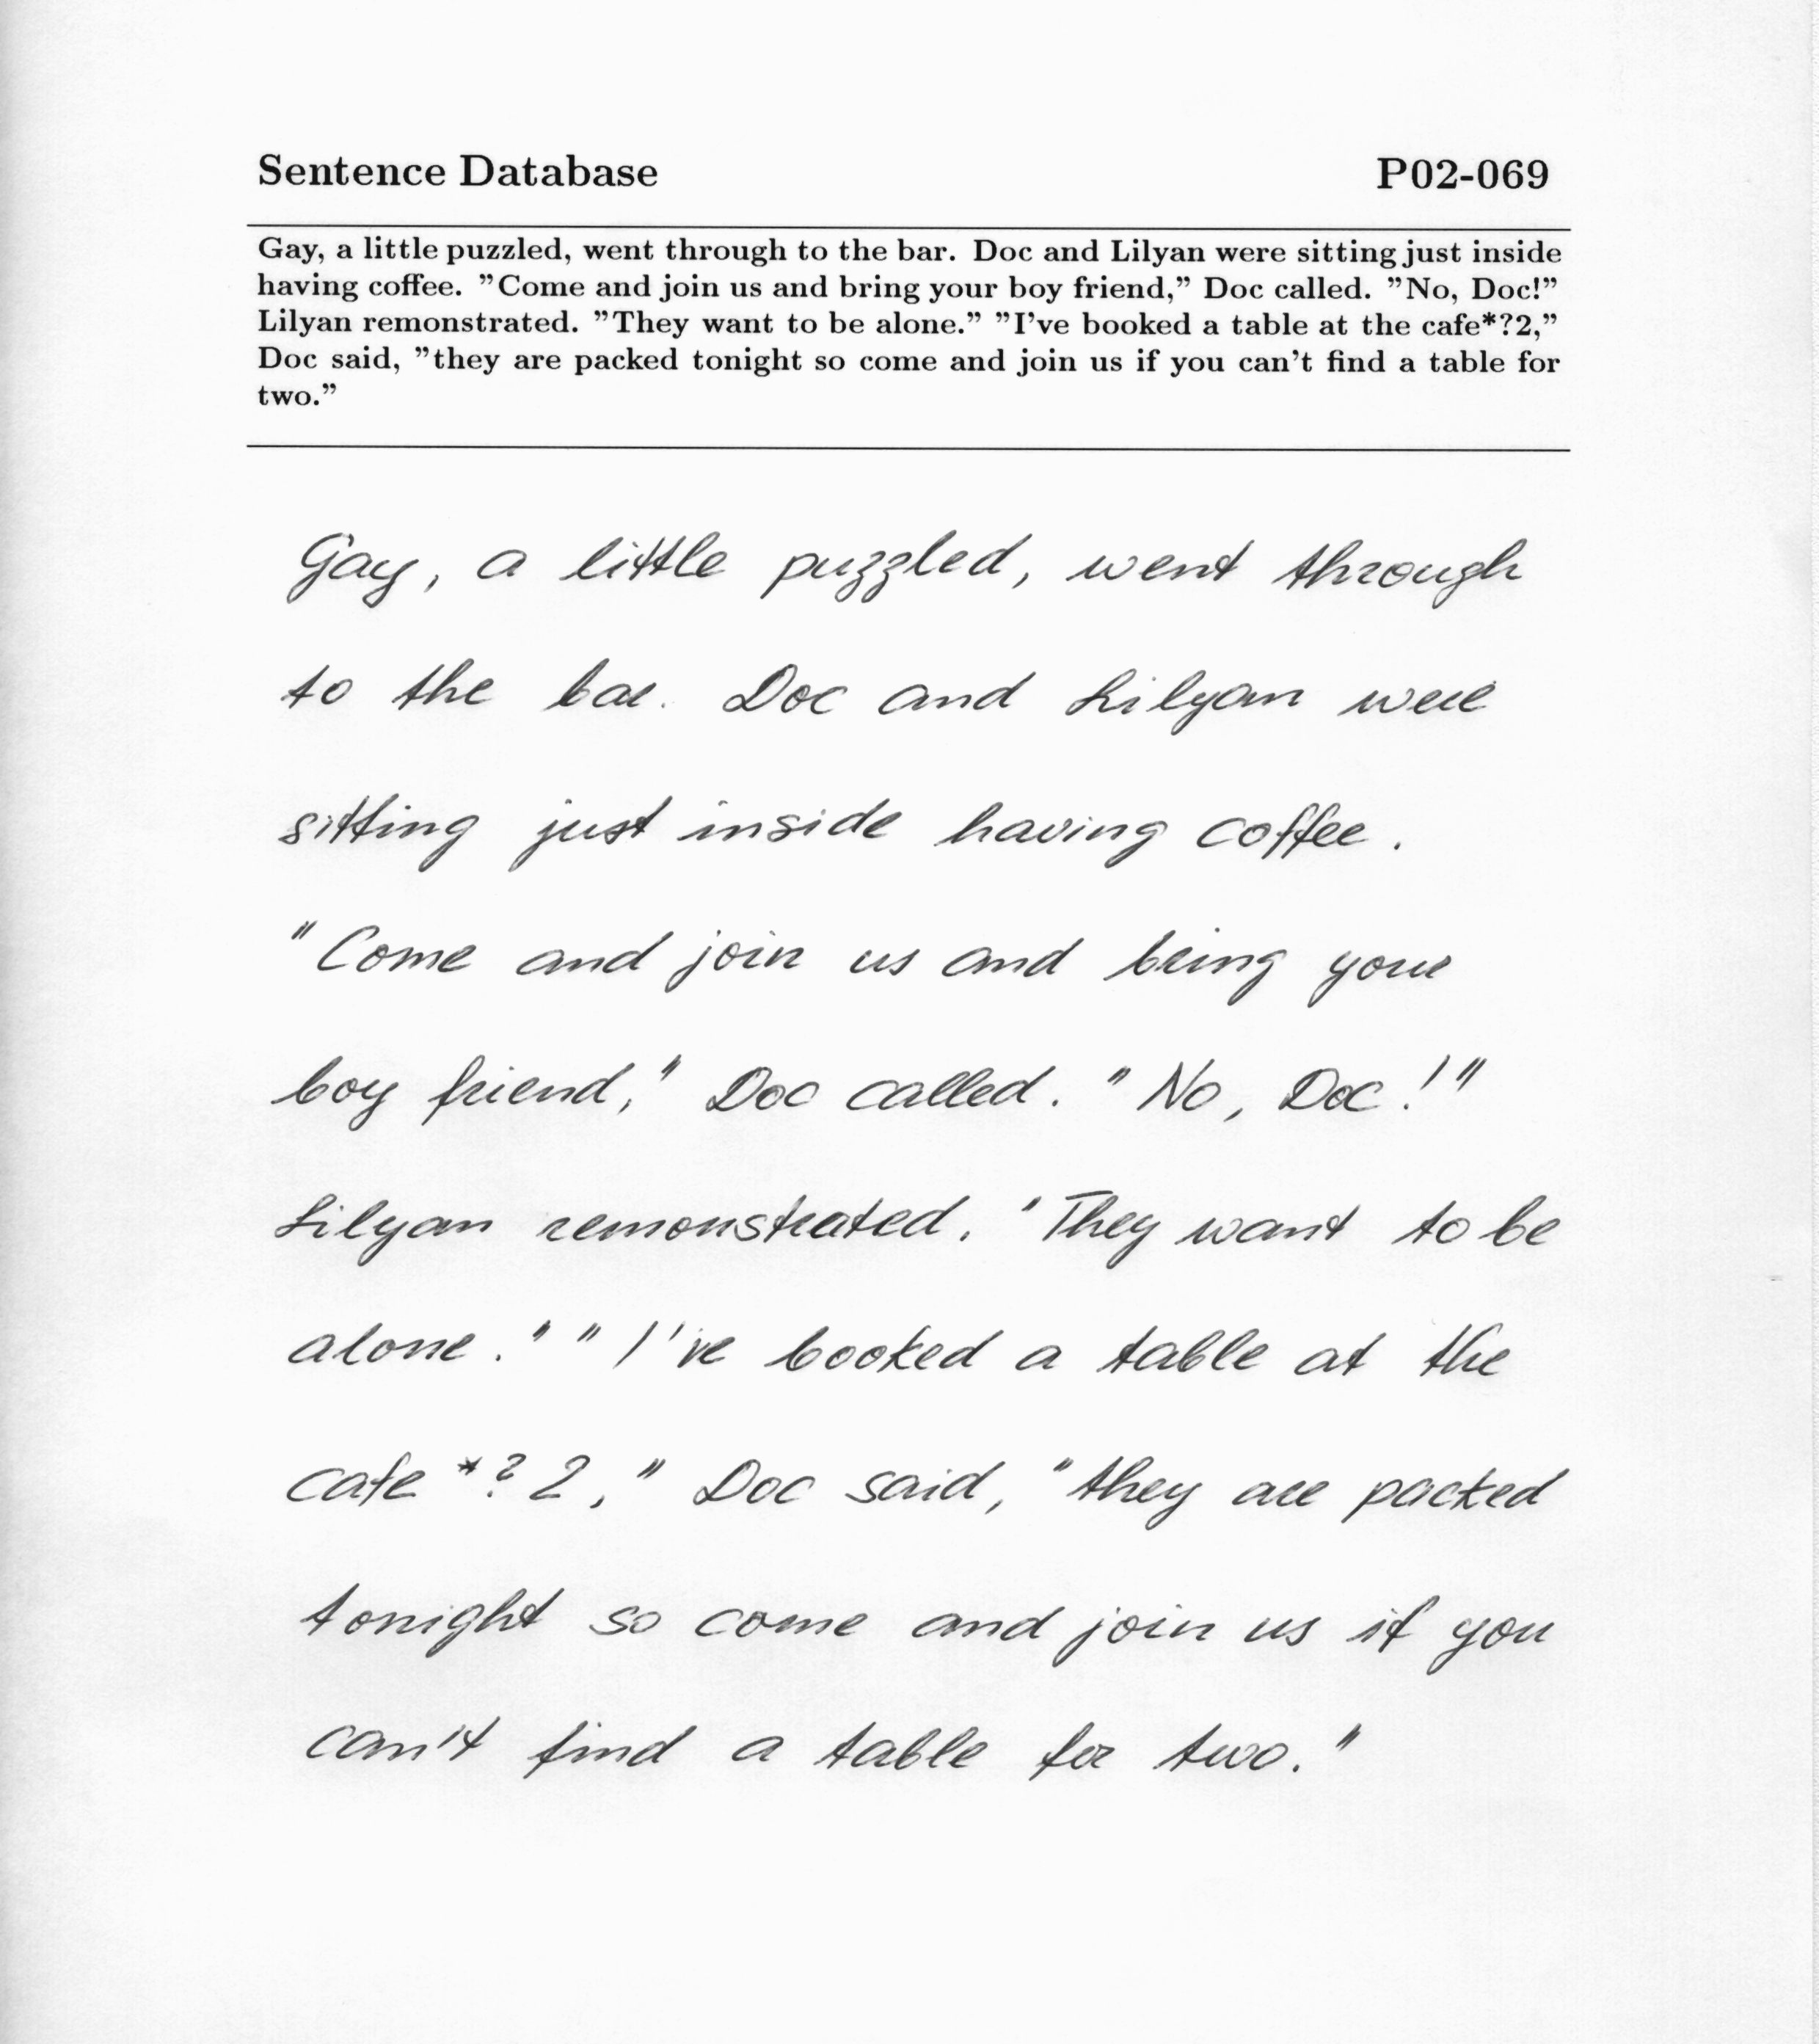 Sentence Database P02-069
Gay, a little puzzled, went through to the bar. Doc and Lilyan were sitting just inside
having coffee. ”Come and join us and bring your boy friend,” Doc called. ”No, Doc!”
Lilyan remonstrated. ”They want to be alone.” ”I’ve booked a table at the cafe*?2,”
Doc said, ”they are packed tonight so come and join us if you can’t find a table for
two.”
Gay, a little puzzled, went through
to the bar. Doc and Lilyan were
sitting just inside having coffee.
"Come and join us and bring your
boy friend," Doc called. "No, Doc!"
Lilyan remonstrated. "They want to be
alone." "I've booked a table at the
cafe *? 2," Doc said, "they are packed
tonight so come and join us if you
can't find a table for two."